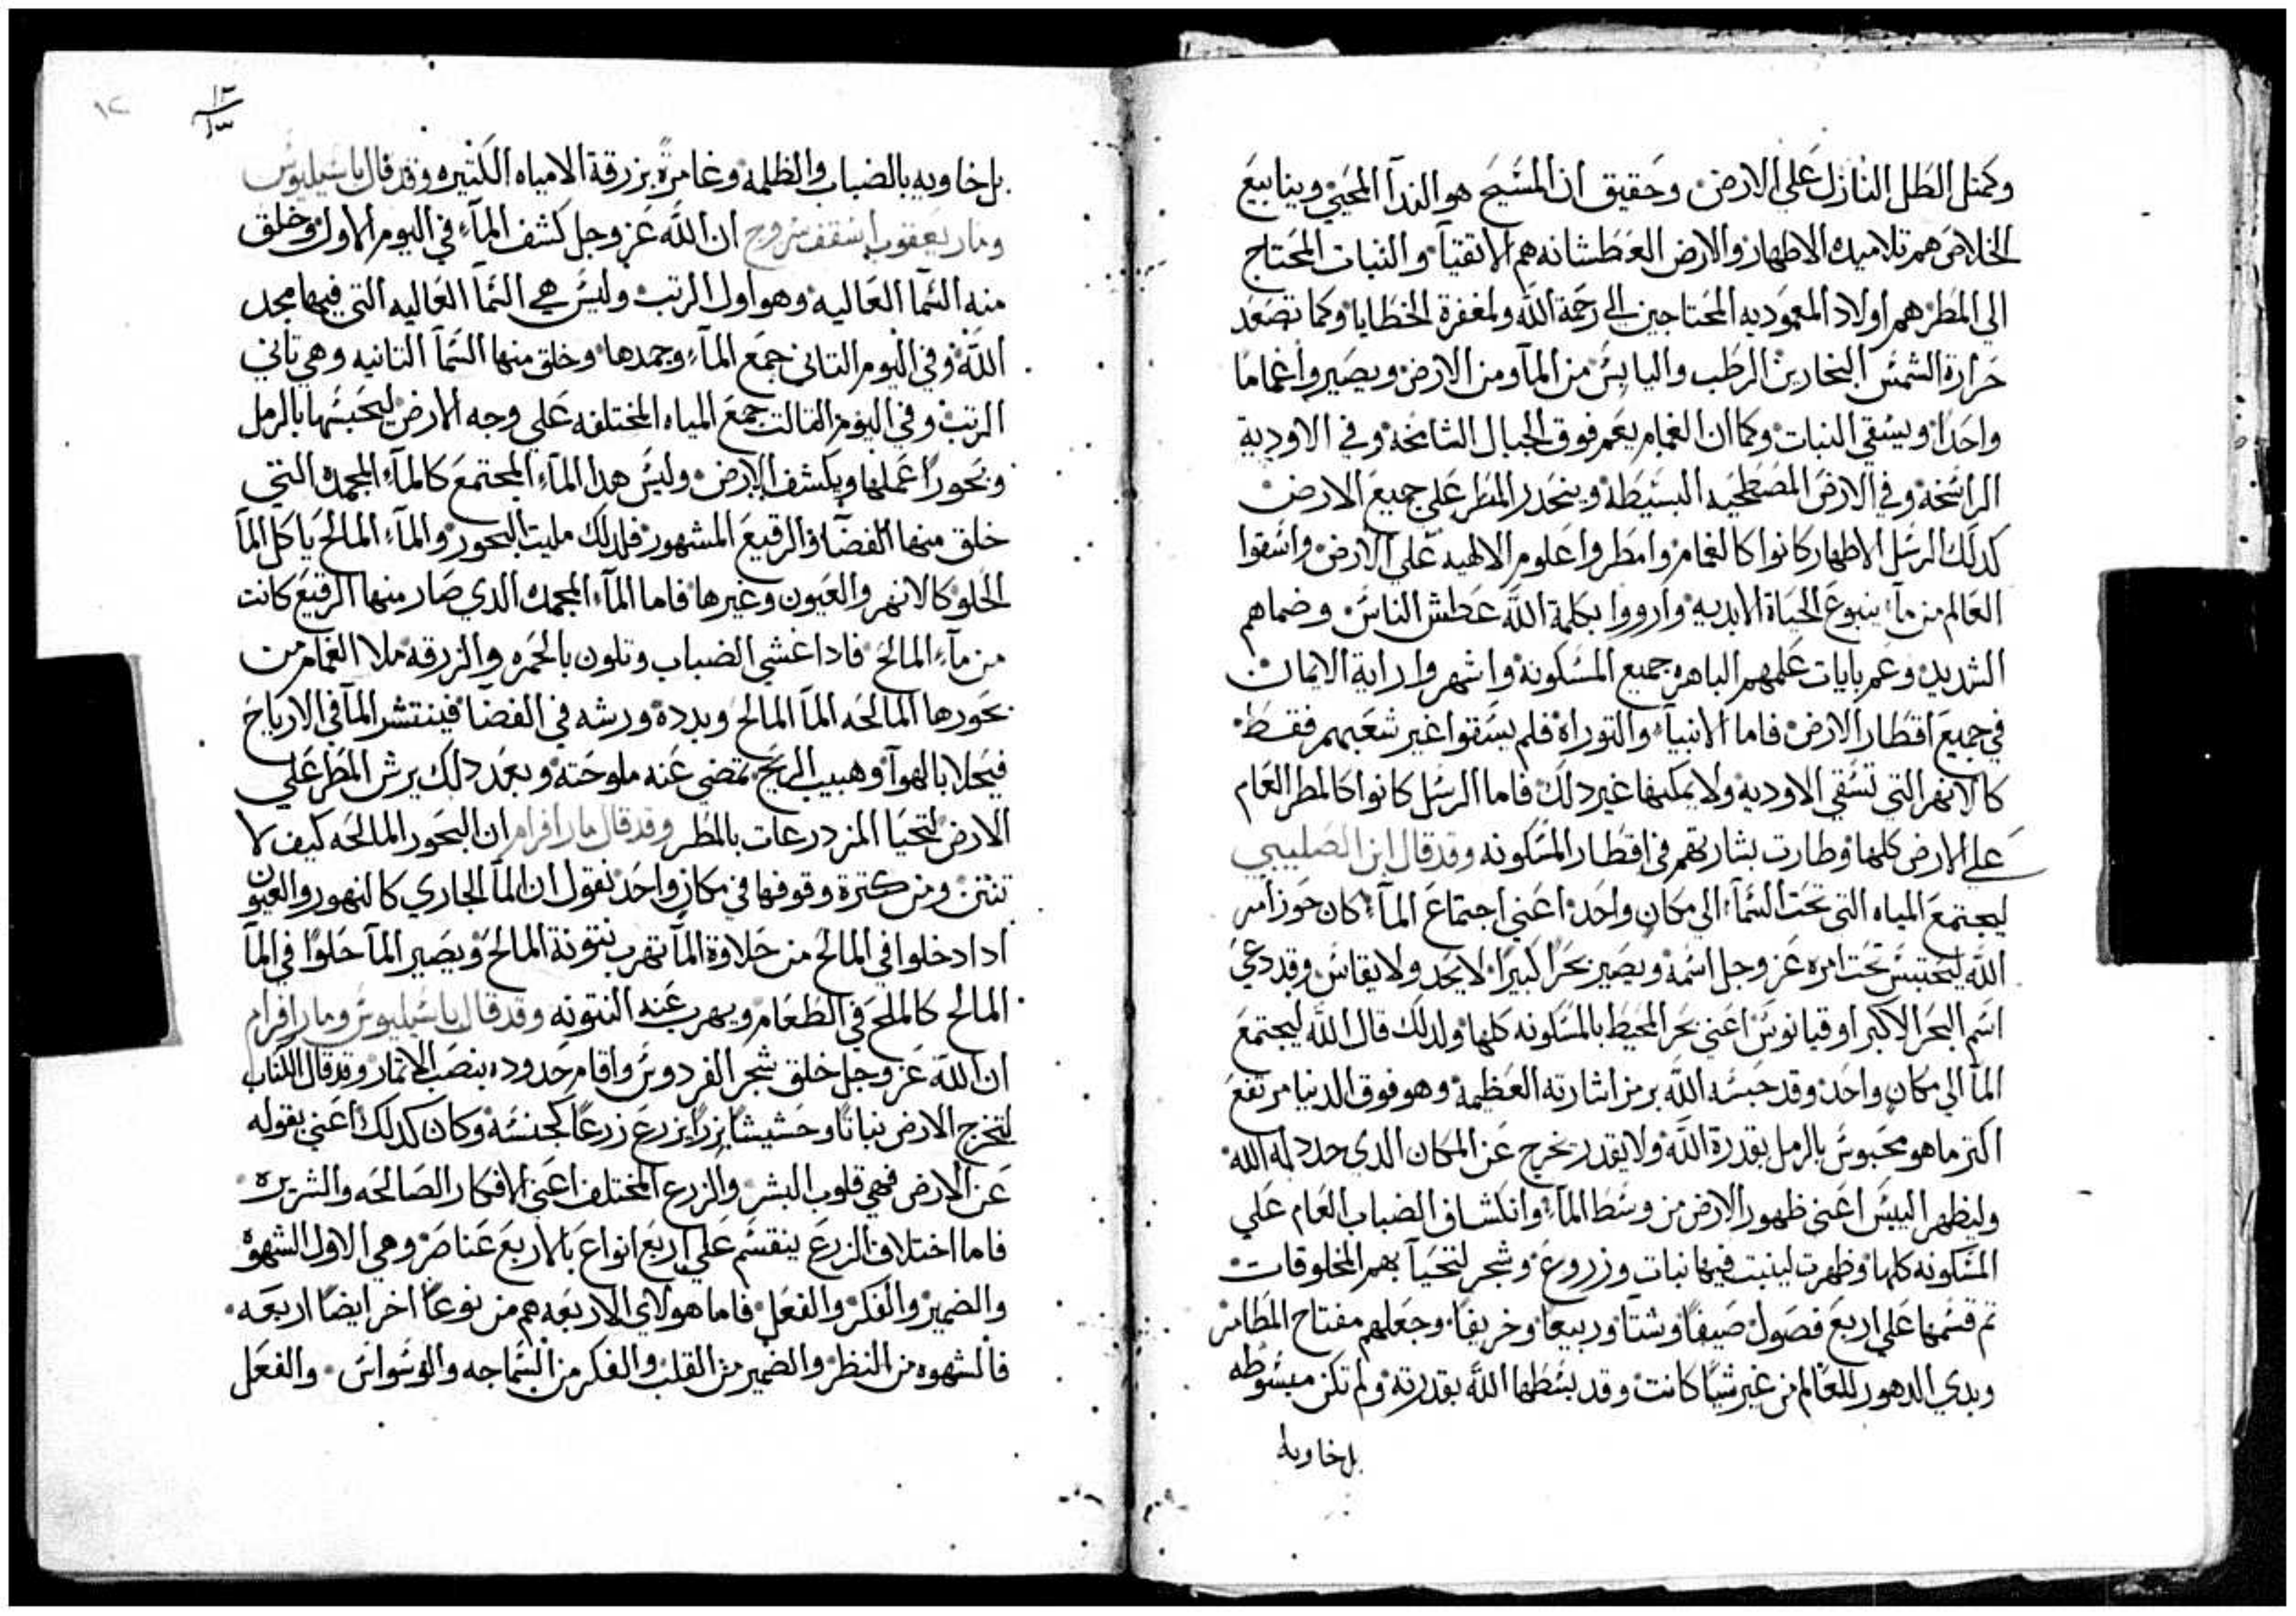 وكمثل الطل النازل علي الارض وحقيق ان المسيح هو الندآ المحيي وينابيع
الخلاص هم تلاميده الاطهار والارض العطشانه هم الاتقيآ والنبات المحتاج
الي المطر هم اولاد المعموديه المحتاجين الي رحمة الله ولمغفرة الخطايا وكما تصعد
حرارة الشمس البخارين الرطب واليابس من المآ ومن الارض ويصيروا غماما
واحدا ويسقي النبات وكما ان الغمام يعم فوق الجبال الشامخه وفي الاودية
الراسخه وفي الارض المصطحيه البسيطه وينحدر المطر علي جميع الارض
كدلك الرسل الاطهار كانوا كالغمام وامطروا علوم الالهيه علي الارض واسقوا
العالم من مآء ينبوع الحياة الابديه وارووا بكلمة الله عطش الناس وضماهم
الشديد وعم بايات علمهم الباهره جميع المسكونه واشهروا راية الايمان
في جميع اقطار الارض فاما الانبيآء والتوراة فلم يسقوا غير شعبهم فقط
كالانهر التي تسقي الاوديه ولا يمكنها غير دلك فاما الرسل كانوا كالمطر العام
علي الارض كلها وطارت بشارتهم في اقطار المسكونه وقد قال ابن الصليبي
ليجتمع المياه التي تحت السمآء الي مكان واحد اعني اجتماع المآء كان حوز امر
الله ليحتبس تحت امره عز وجل اسمه ويصير بحرا كبيرا لا يحد ولا يقاس وقد دعي
اسم البحر الاكبر اوقيانوس اعني بحر المحيط بالمسكونه كلها ولدلك قال الله ليجتمع
المآ الي مكان واحد وقد حبسه الله برمز اشارته العظيمه وهو فوق الدنيا مرتفع
اكتر ما هو محبوس بالرمل بقدرة الله ولا يقدر يخرج عن المكان الدي حدد له الله
وليظهر اليبس اعني ظهور الارض من وسط المآء وانكشاف الضباب العام علي
المسكونه كلها وظهرت لينبت فيها نبات وزروع وشجر لتحيآ بهم المخلوقات
تم قسمها علي اربع فصول صيفا وشتا وربيعا وخريفا وجعلهم مفتاح المطامر
وبدي الدهور للعالم من غير شيا كانت وقد بسطها الله بقدرته ولم تكن مبسوطه
بل خاويه
١٢
١٢
بل خاويه بالضباب والظلمه وغامرة بزرقة الامياه الكثيره وقد قال باسيليوس
ومار يعقوب اسقف سروج ان الله عز وجل كشف المآء في اليوم الاول وخلق
منه السمآ العاليه وهو اول الرتب وليس هي السمآ العاليه التي فيها مجد
الله وفي اليوم التاني جمع المآء وجمدها وخلق منها السمآ التانيه وهي تاني
الرتب وفي اليوم التالت جمع المياه المختلفه علي وجه الارض ليحبسها بالرمل
وبحورا عملها ويكشف الارض وليس هدا المآء المجتمع كالمآء المجمده التي
خلق منها الفضآ والرقيع المشهور فلدلك مليت البحور والمآء المالح ياكل المآ
الحلو كالانهر والعيون وغيرها فاما المآء المجمده الدي صار منها الرقيع كانت
من مآء المالح فادا غشي الضباب وتلون بالحمره والزرقه ملا الغمام من
بحورها المالحه المآ المالح وبدده ورشه في الفضا فينتشر المآ في الارياح
فيحلا بالهوآ وهبيب الريح تمضي عنه ملوحته وبعد دلك يرش المطر علي
الارض لتحيا المزدرعات بالمطر وقد قال مار افرام ان البحور المالحه كيف لا
تنتن ومن كترة وقوفها في مكان واحد نقول ان المآ الجاري كالنهور والعيون
ادا دخلوا في المالح من حلاوة المآ تهرب نتونة المالح ويصير المآ حلوا في المآ
المالح كالملح في الطعام ويهرب عنه النتونه وقد قال باسيليوس ومار افرام
ان الله عز وجل خلق شجر الفردوس واقام حدوده بنصب الاتمار وقد قال الكتاب
لتخرج الارض نباتا وحشيشا بزرا يزرع زرعا كجنسه وكان كدلك اعني بقوله
عن الارض فهي قلوب البشر والزرع المختلف اعني الافكار الصالحه والشريره
فاما اختلاف الزرع ينقسم علي اربع انواع بالاربع عناصر وهي الاول الشهوه
والضمير والفكر والفعل فاما هولاي الاربعه هم من نوعا اخر ايضا اربعه
فالشهوه من النظر والضمير من القلب والفكر من السماجه والوسواس والفعل